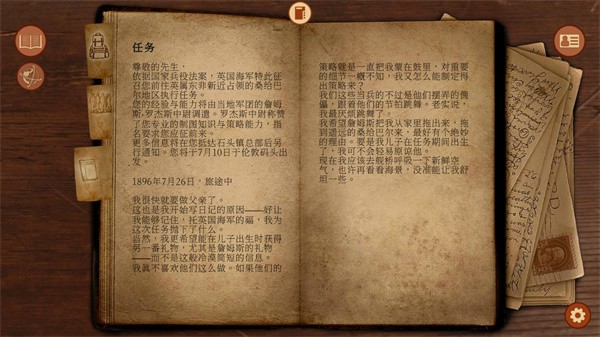 任务
尊敬的先生,
依据国家兵役法案, 英国海军特此征
召您前往英属东非新近占领的桑给巴
尔地区执行任务。
您的经验与能力将由当地军团的詹姆
斯·罗杰斯中尉调遣。罗杰斯中尉称赞
了您专业的制图知识与策略能力, 指
名要求您应征前来。
更多信息将在您抵达石头镇总部后另
行通知。您将于7月10日于伦敦码头出
发。
1896年7月26日, 旅途中
我很快就要做父亲了。
这也是我开始写日记的原因——好让
我能够记住, 托英国海军的福, 我为
这次任务抛下了什么。
当然, 我更希望能在儿子出生时获得
另一番礼物, 尤其是詹姆斯的礼物
——而不是这般冷漠简短的信息。
我真不喜欢他们这么做。如果他们的
策略就是一直把我蒙在鼓里, 对重要
的细节一概不知, 我又怎么能制定得
出策略来?
我们这些当兵的不过是他们摆弄的傀
儡, 跟着他们的节拍跳舞。老实说,
我最厌烦跳舞了。
我希望詹姆斯把我从家里拖出来, 拖
到遥远的桑给巴尔来, 最好有个绝妙
的理由。要是我儿子在任务期间出生
了, 我可不会轻易原谅他。
现在我应该去舰桥呼吸一下新鲜空
气, 也许再看看海景, 没准能让我舒
坦一些。